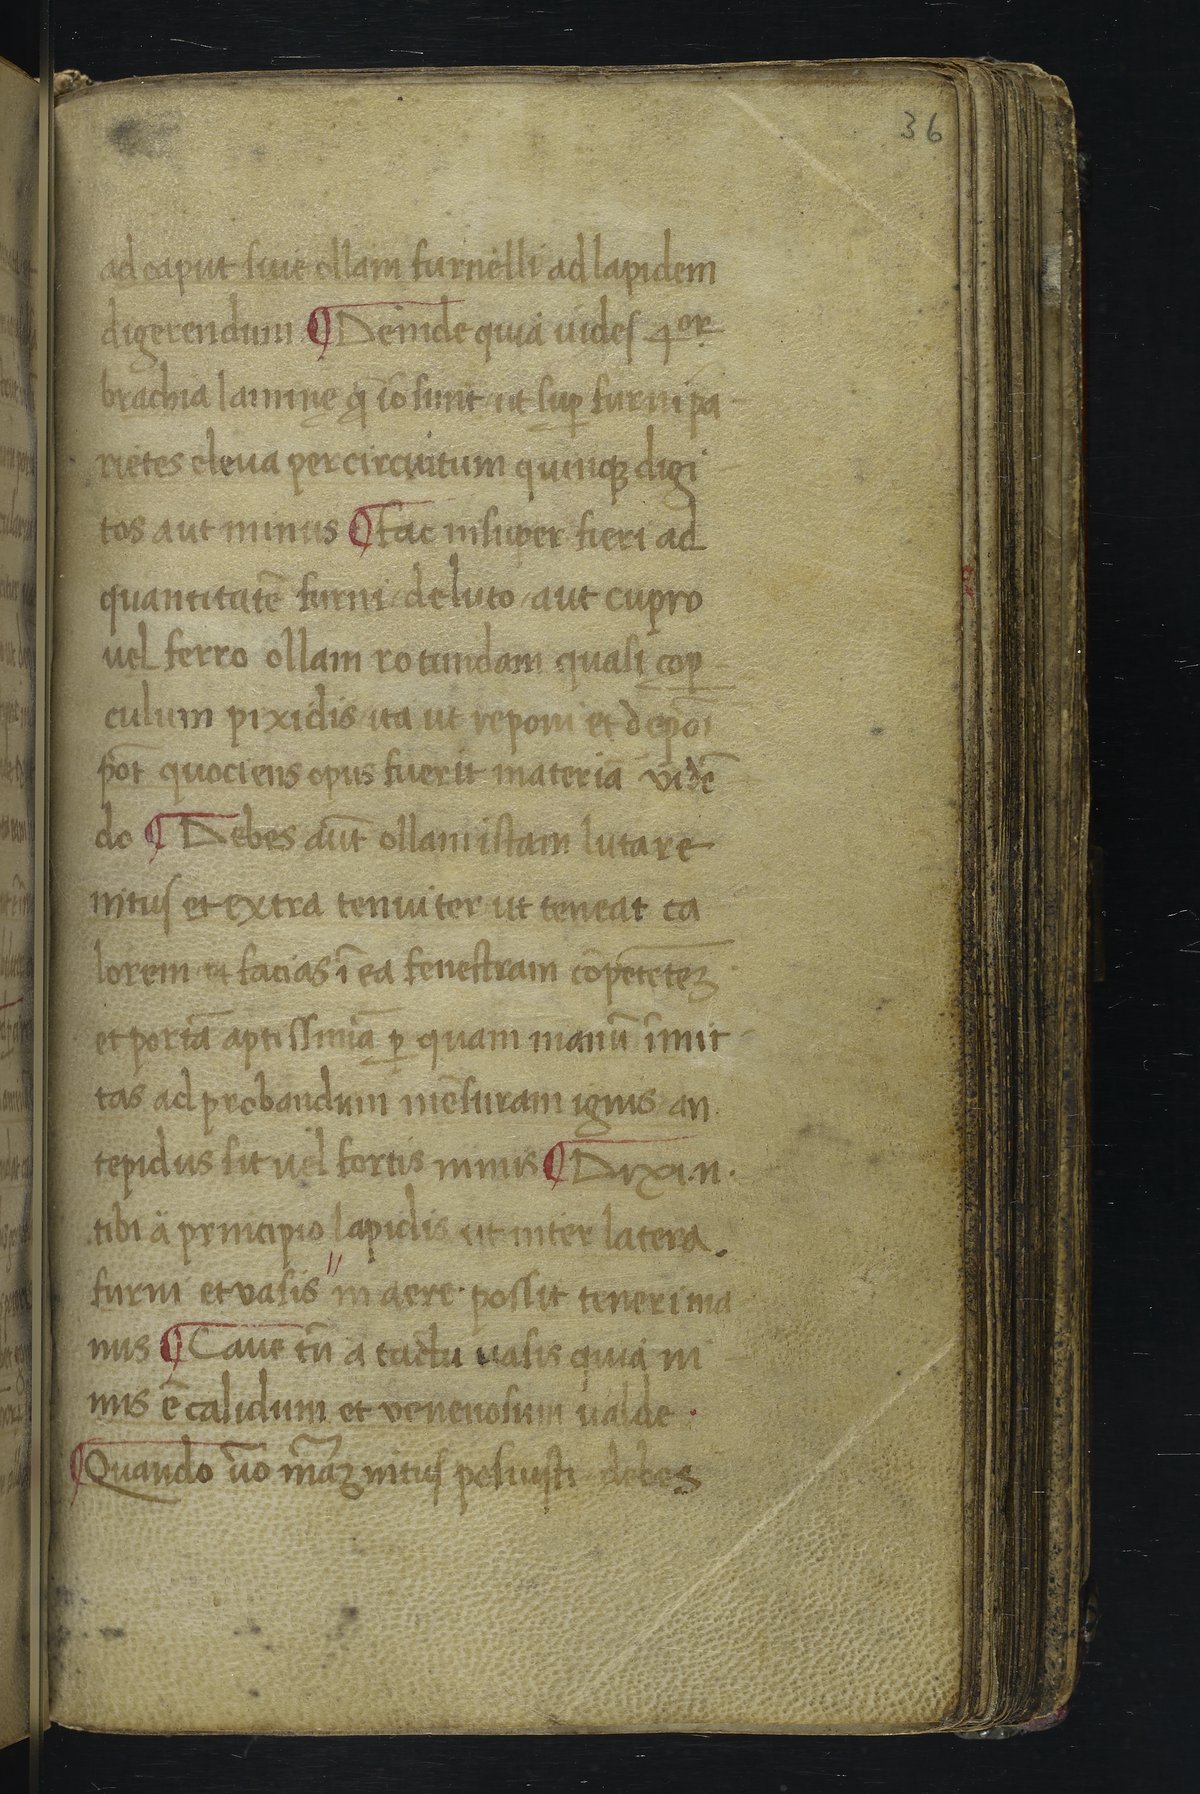 36
ad caput siue ollam furnelli ad lapidem
digerendum ¶ Deinde quia uides 4or
brachia lamine q̄ iō sunt ut suꝑ furni pa
rietes eleua per circuitum quinqꝫ digi
tos aut minus ¶ Fac insuper fieri ad
quantitatē furni / de luto / aut cupro
uel ferro ollam rotundam quasi coꝑ
culum pixidis / ita ut reponi et depōi
pōt quociens opus fuerit materiā vidē
do ¶ Debes aūt ollam istam lutare
intus et extra tenuiter ut teneat ca
lorem facias ī ea fenestram cōpetētēꝫ
et portā aptissimā ꝑ quam manū īmit
tas ad probandum mēsuram ignis / an
tepidus sit uel fortis nimis ¶ Dixi .n.
tibi ā principio lapidis ut inter latera
furni et vasis // in aere possit teneri ma
nus ¶ Caue tn̄ a tactu uasis quia ni
mis ē calidum et venenosum ualde .
¶ Quando ūo m̄iaꝫ intus posuisti debes